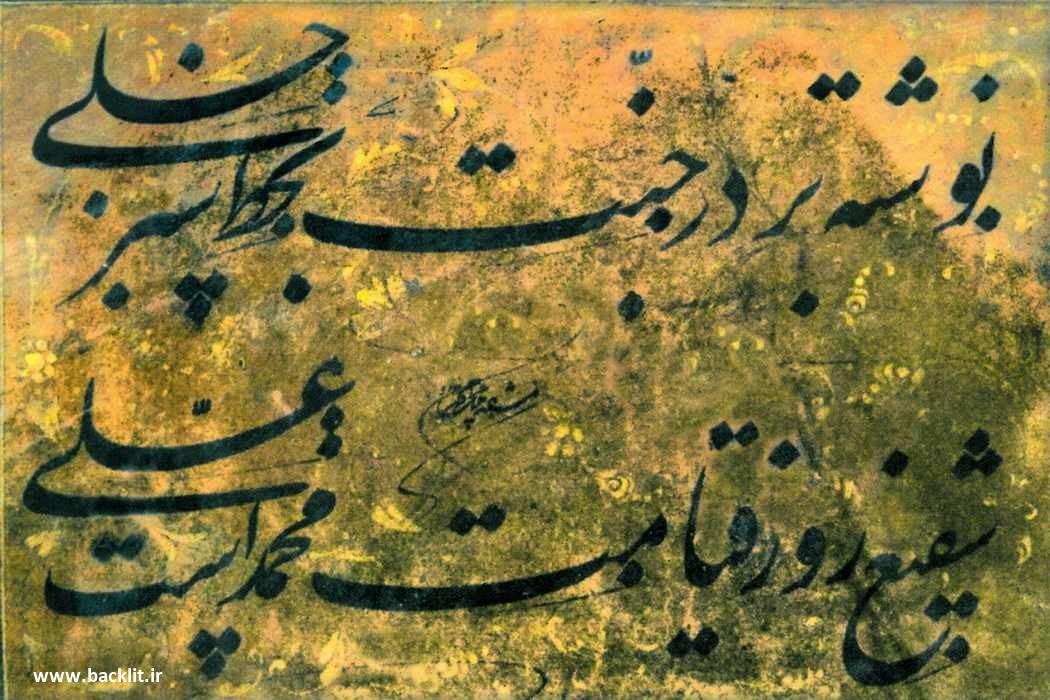 نوشته بر در جنت بخط سبز جلی
شفیع روز قیامت محمد است علی
www.backlit.ir